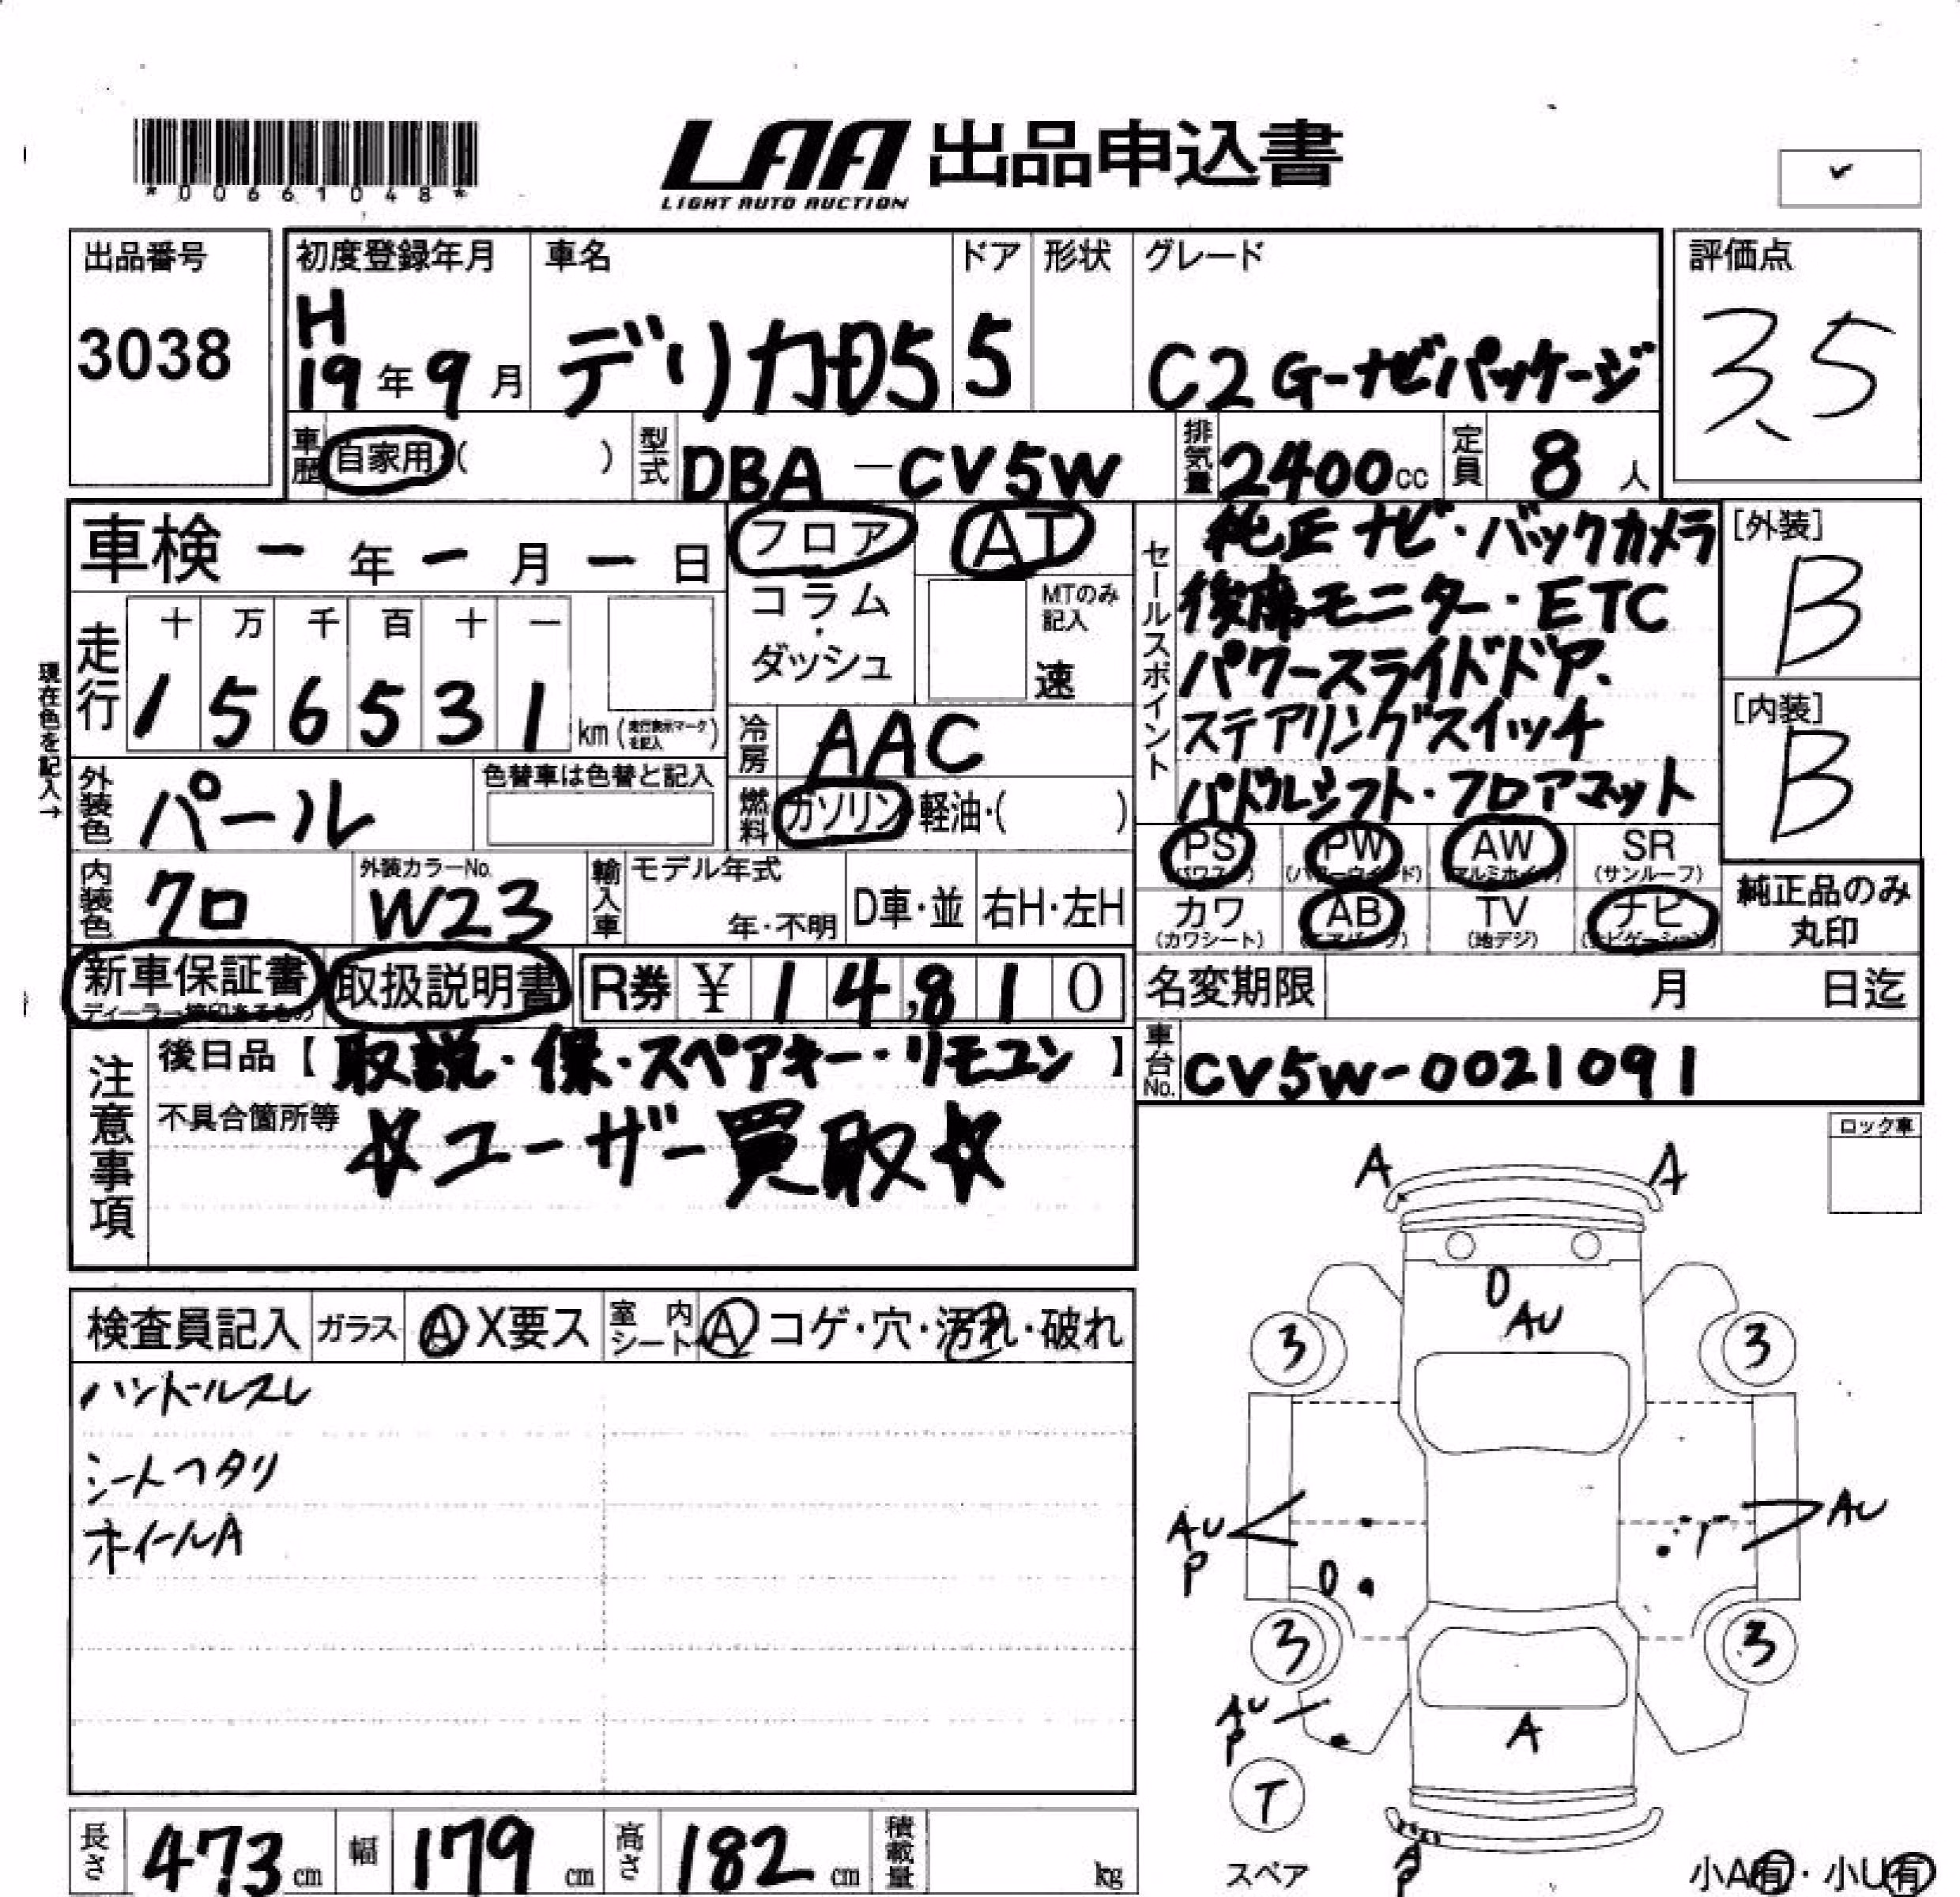 *00661048*
LAA 出品申込書
LIGHT AUTO AUCTION
出品番号
3038
初度登録年月
H
19年9月
車名
デリカD5
ドア
5
形状
グレード
C2 G-ナビパッケージ
評価点
3.5
車歴 自家用 ( )
型式 DBA-CV5W
排気量 2400cc
定員 8人
車検 - 年 - 月 - 日
フロア
コラム・ダッシュ
AT
MTのみ記入
速
セールスポイント
純正ナビ・バックカメラ
後席モニター・ETC
パワースライドドア、
ステアリングスイッチ
パドルシフト・フロアマット
[外装]
B
[内装]
B
現在色を記入→
走行
十 万 千 百 十 一
1 5 6 5 3 1 km (走行表示マークを記入)
冷房 AAC
燃料 ガソリン・軽油・( )
外装色 パール
色替車は色替と記入
内装色 クロ
外装カラーNo.
W23
輸入車
モデル年式
年・不明
D車・並
右H・左H
PS (パワステ)
PW (パワーウインド)
AW (アルミホイル)
SR (サンルーフ)
カワ (カワシート)
AB (エアバッグ)
TV (地デジ)
ナビ (ナビゲーション)
純正品のみ丸印
新車保証書
ディーラー捺印あるもの
取扱説明書
R券 ¥ 14,810
名変期限 月 日迄
車台No. CV5W-0021091
注意事項
後日品【取説・保・スペアキー・リモコン】
不具合箇所等
☆ユーザー買取☆
ロック車
検査員記入
ガラス A X要ス
室内シート A コゲ・穴・汚れ・破れ
ハンドルスレ
シートヘタリ
ホイールA
A A
D
AU
3 3
AU
P
AU
D
3 3
AU
P
A
T
スペア
A
P
小A有・小U有
長さ 473cm
幅 179cm
高さ 182cm
積載量 kg